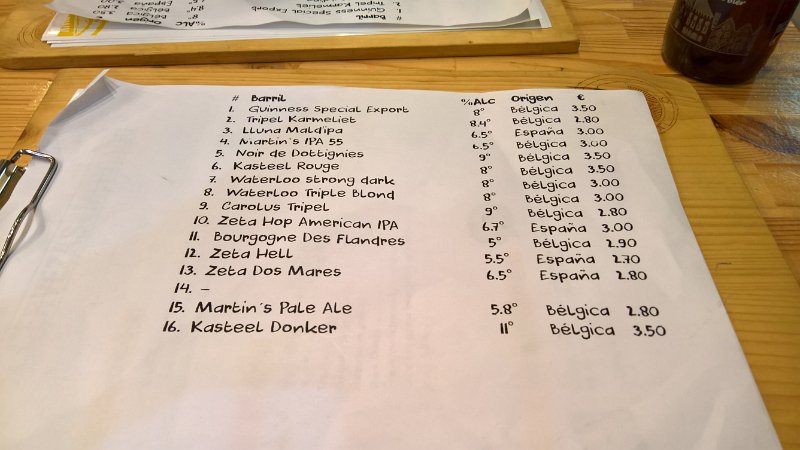 # Barril %ALC Origen
1. Guinness Special Export 8° Bélgica 3.50
2. Tripel Karmeliet 8.4° Bélgica 2.80
España 3.00
# Barril %ALC Origen €
1. Guinness Special Export 8° Bélgica 3.50
2. Tripel Karmeliet 8.4° Bélgica 2.80
3. Lluna Maldipa 6.5° España 3.00
4. Martin's IPA 55 6.5° Bélgica 3.00
5. Noir de Dottignies 9° Bélgica 3.50
6. Kasteel Rouge 8° Bélgica 3.50
7. Waterloo strong dark 8° Bélgica 3.00
8. Waterloo Triple Blond 8° Bélgica 3.00
9. Carolus Tripel 9° Bélgica 2.80
10. Zeta Hop American IPA 6.7° España 3.00
11. Bourgogne Des Flandres 5° Bélgica 2.90
12. Zeta Hell 5.5° España 2.70
13. Zeta Dos Mares 6.5° España 2.80
14. –
15. Martin's Pale Ale 5.8° Bélgica 2.80
16. Kasteel Donker 11° Bélgica 3.50